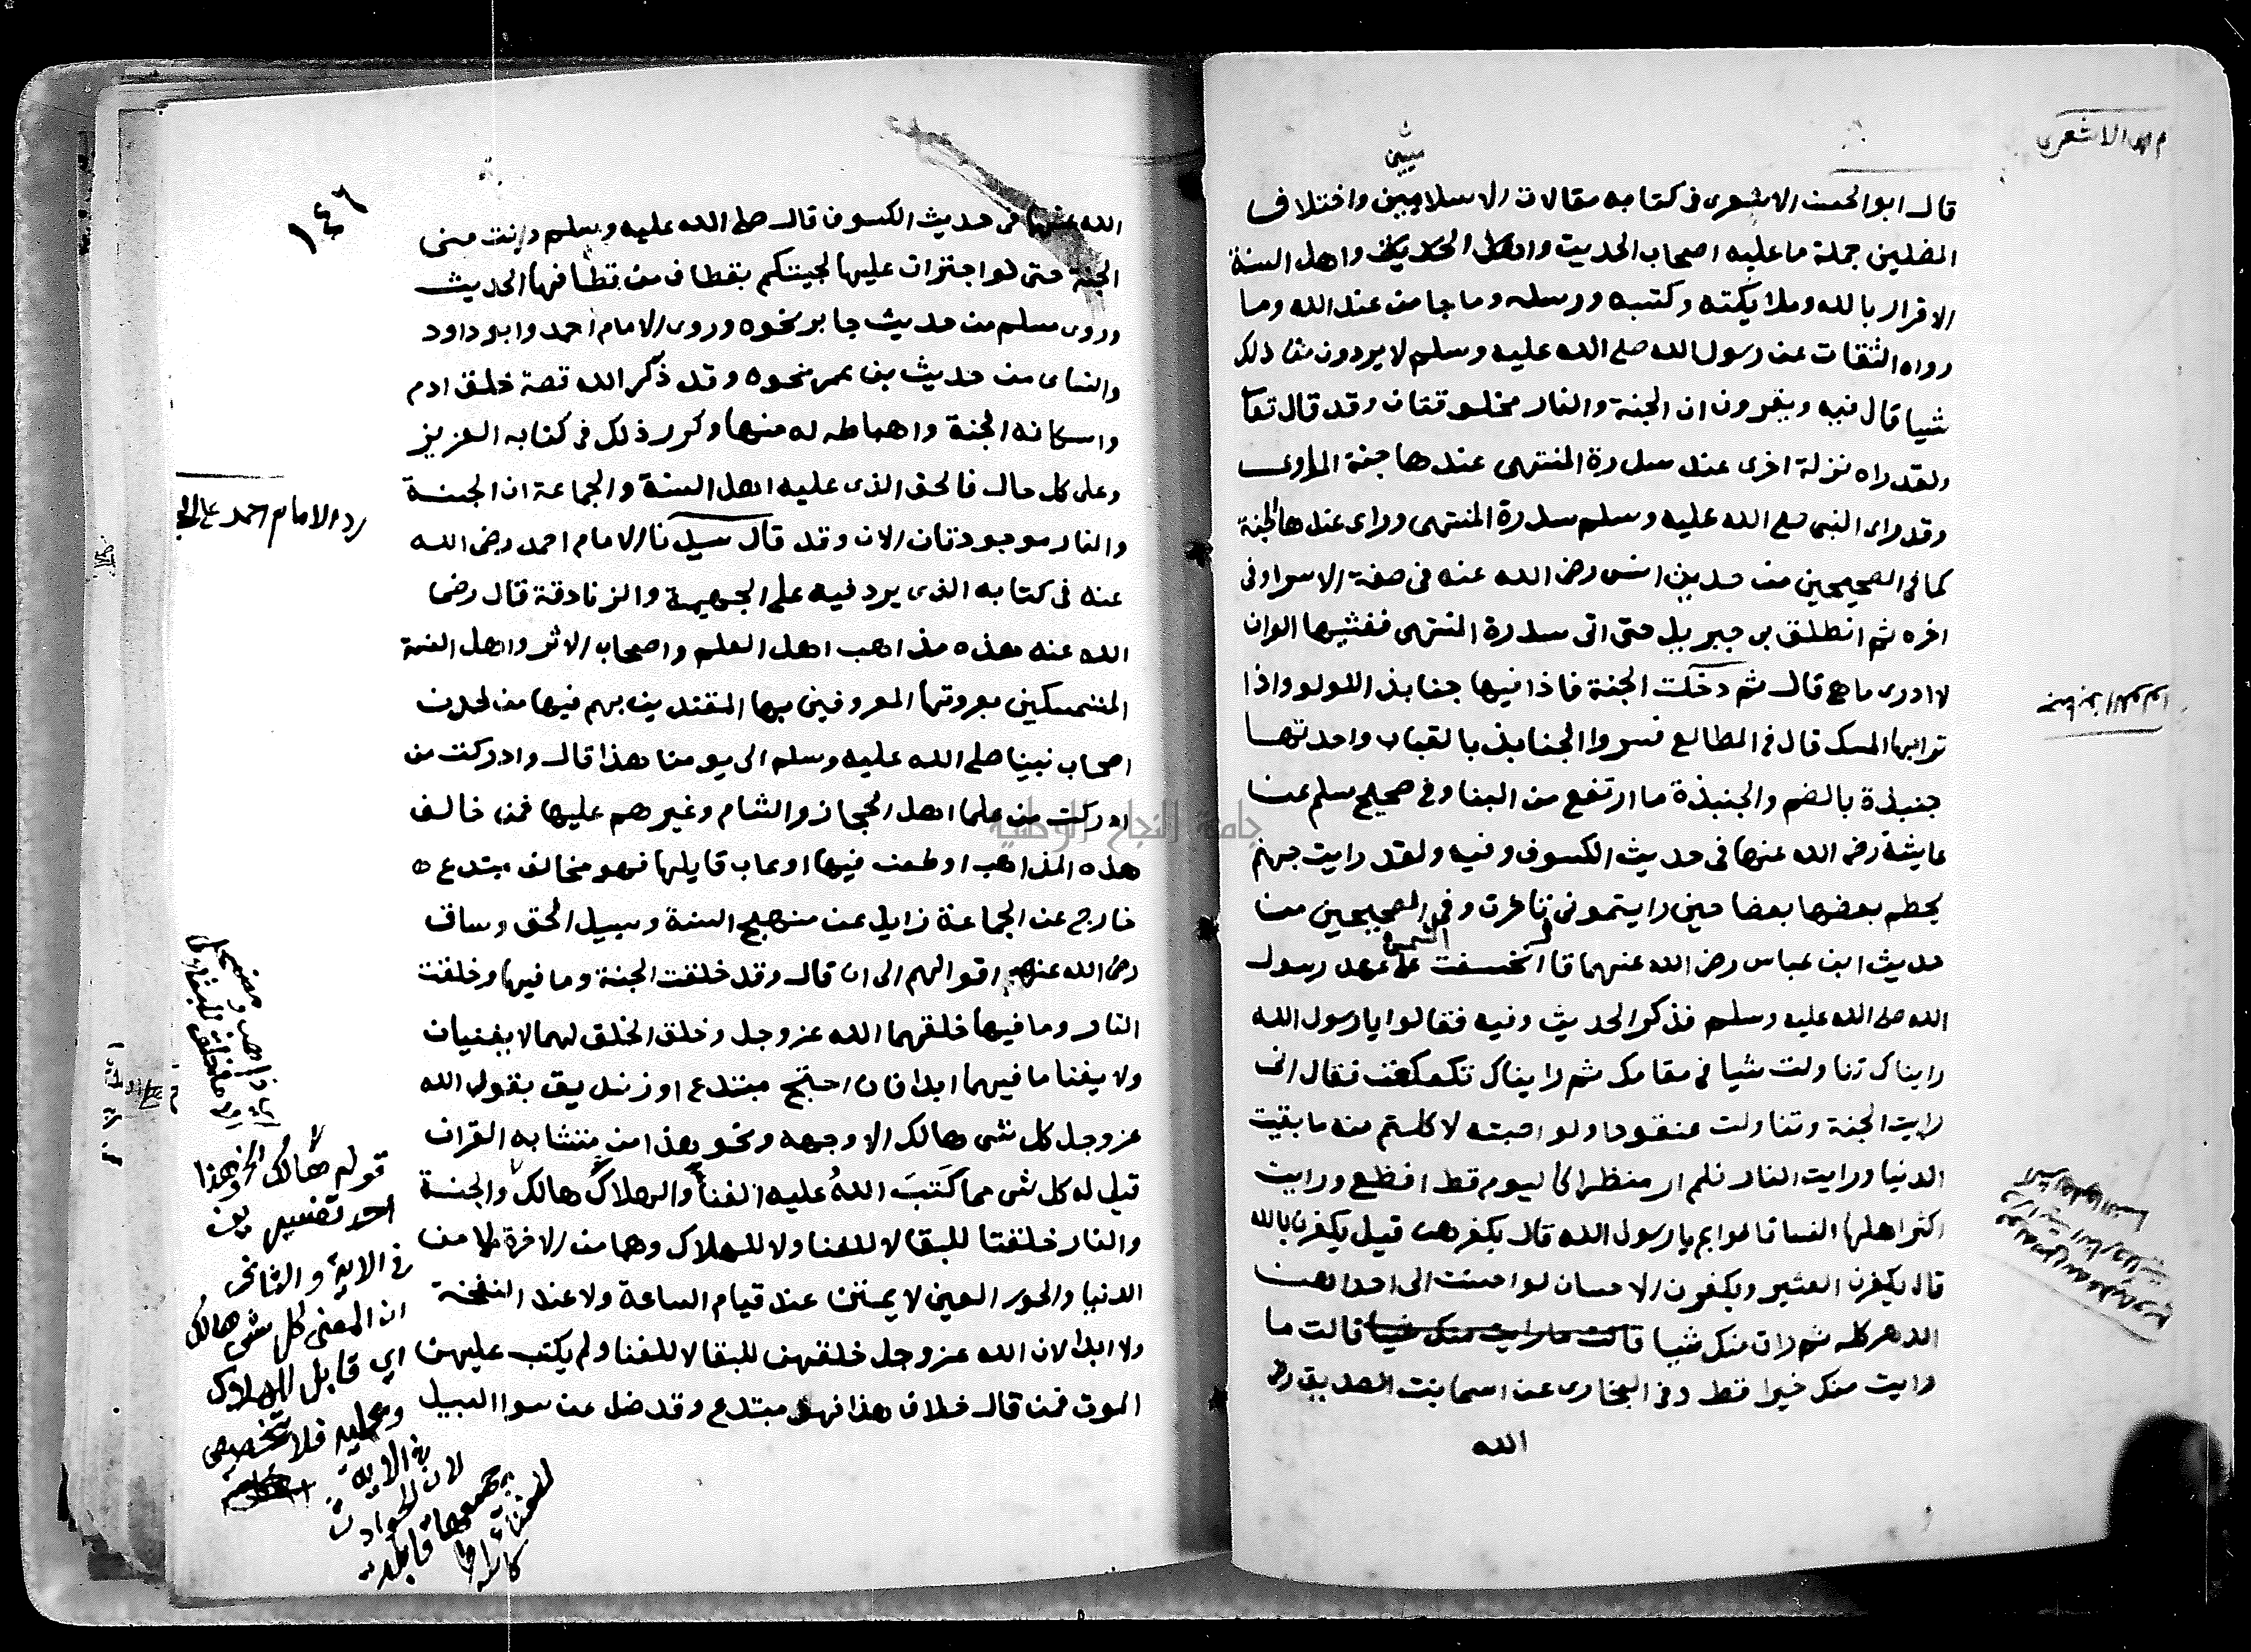 م الاشعرى
شيين
قال ابو الحسن الاشعرى فى كتابه مقالات الاسلاميين واختلاف
المضلين جملة ما عليه اصحاب الحديث واهل السنة
الاقرار بالله وملايكته وكتبه ورسله وما جا من عند الله وما
رواه الثقات عن رسول الله صلى الله عليه وسلم لا يردون من ذلك
شيا قال فيه ويقرون ان الجنة والنار مخلوقتان وقد قال تعا
ولقد راه نزلة اخرى عند سدرة المنتهى عندها جنة الماوى
وقد راى النبى صلى الله عليه وسلم سدرة المنتهى وراى عندها الجنة
كما فى الصحيحين من حديث انس رضى الله عنه فى صفة الاسرا وفى
اخره ثم انطلق بى جبريل حتى اتى سدرة المنتهى فغشيها الوان
لا ادرى ما هى قال ثم دخلت الجنة فاذا فيها جنابذ اللولو واذا
جنابذ اللولو
ترابها المسك قال فى المطالع فسروا الجنابذ بالقباب واحدتها
جنبذة بالضم والجنبذة ما ارتفع من البنا وفى صحيح مسلم عن
عايشة رضى الله عنها فى حديث الكسوف وفيه ولقد رايت جهنم
يحطم بعضها بعضا حين رايتمونى تاخرت وفى الصحيحين من
حديث ابن عباس رضى الله عنهما قال انخسفت الشمس على عهد رسول
الله صلى الله عليه وسلم فذكر الحديث وفيه فقالوا يا رسول الله
رايناك تناولت شيا فى مقامك ثم رايناك تكعكعت فقال انى
رايت الجنة وتناولت عنقودا ولو اصبته لاكلتم منه ما بقيت
الدنيا ورايت النار فلم ار منظرا كاليوم قط افظع ورايت
اكثر اهلها النسا قالوا بم يا رسول الله قال بكفرهن قيل يكفرن بالله
قال يكفرن العشير ويكفرن الاحسان لو احسنت الى احداهن
الدهر كله ثم رات منك شيا قالت ما رايت منك شيا قالت ما
رايت منك خيرا قط وفى البخارى عن اسما بنت الصديق رضى
الله
١٤٦
الله عنها فى حديث الكسوف قال صلى الله عليه وسلم دنت منى
الجنة حتى لو اجترات عليها لجيتكم بقطاف من قطافها الحديث
وروى مسلم من حديث جابر نحوه وروى الامام احمد وابو داود
والنساى من حديث بن عمر نحوه وقد ذكر الله قصة خلق ادم
واسكانه الجنة واهباطه له منها وكرر ذلك فى كتابه العزيز
وعلى كل حال فالحق الذى عليه اهل السنة والجماعة ان الجنة
رد الامام احمد على الج
والنار موجودتان الان وقد قال سيدنا الامام احمد رضى الله
عنه فى كتابه الذى يرد فيه على الجهمية والزنادقة قال رضى
الله عنه هذه مذاهب اهل العلم واصحاب الاثر واهل السنة
المتمسكين بعروتها المعروفين بها المقتدين بهم فيها من لدن
اصحاب نبينا صلى الله عليه وسلم الى يومنا هذا قال وادركت من
ادركت من علما اهل الحجاز والشام وغيرهم عليها فمن خالف
هذه المذاهب او طعن فيها او عاب قايلها فهو مخالف مبتدع ه
خارج عن الجماعة زايل عن منهج السنة وسبيل الحق وساق
رضى الله عنه اقوالهم الى ان قال وقد خلقت الجنة وما فيها وخلقت
النار وما فيها خلقهما الله عز وجل وخلق الخلق لهما لا يفنيان
ولا يفنا ما فيهما ابدا فان احتج مبتدع او زنديق بقول الله
عز وجل كل شى هالك الا وجهه ونحو هذا من متشابه القران
قيل له كل شى مما كَتَبَ اللهُ عليه الفنا والهلاك هالك والجنة
والنار خلقتا للبقا لا للفنا ولا للهلاك وهما من الاخرة لا من
الدنيا والحور العين لا يمتن عند قيام الساعة ولا عند النفخة
ولا ابدا لان الله عز وجل خلقهن للبقا لا للفنا ولم يكتب عليهن
الموت فمن قال خلاف هذا فهو مبتدع وقد ضل عن سوا السبيل
قوله هالك الخ وهذا
احد تفسيرين
فى الاية والثانى
ان المعنى كل شى هالك
اي قابل للهلاك
وعليه فلا تخصيص
فى الاية
لان الحوادث
جميعها قابلة
للفنا
جامعة النجاح الوطنية